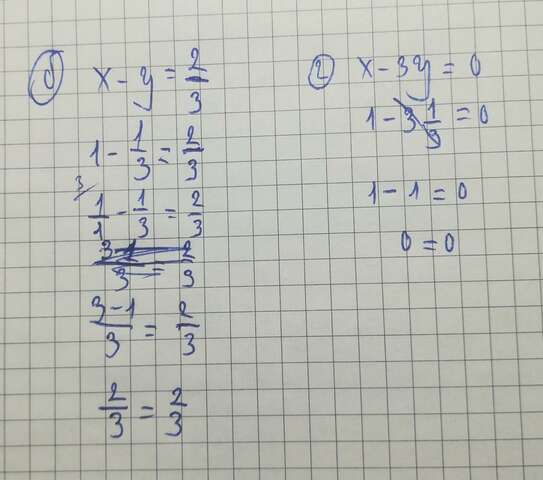 б) x - y = 2/3
1 - 1/3 = 2/3
3/ 1/1 - 1/3 = 2/3
3-1/3 = 2/3
2/3 = 2/3
2) x - 3y = 0
1 - 3 1/3 = 0
1 - 1 = 0
0 = 0